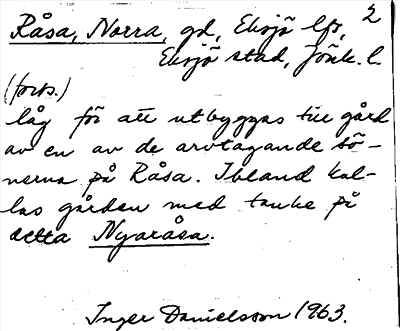 2
Råsa, Norra, gd, Eksjö lfs,
Eksjö stad, Jönk. l.
(forts.)
låg för att utbyggas till gård
av en av de arvtagande sö-
nerna på Råsa. Ibland kal-
las gården med tanke på
detta Nyaråsa.
Inger Danielsson 1963.